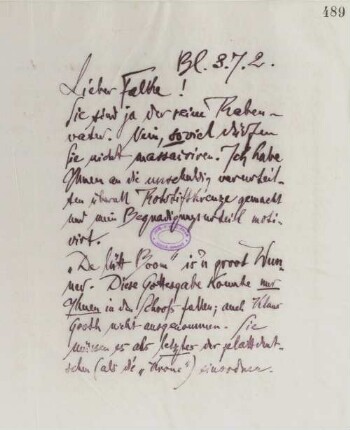 489
Bl. 3.7.2.
Lieber Falke!
Sie sind ja der reine Raben-
vater. Nein, soviel dürfen
Sie nicht massacriren. Ich habe
Ihnen an die unschuldig verurteil-
ten überall Rotstiftkreuze gemacht
und mein Begnadigungsurteil moti-
virt.
„De lütt Boom“ is'n groot Wun-
ner. Diese Gottesgabe konnte nur
Ihnen in den Schooß fallen; auch Klaus
Groth nicht ausgenommen. Sie
müssen es als letzter der plattdeut-
schen (als de „Krone“) einordnen.